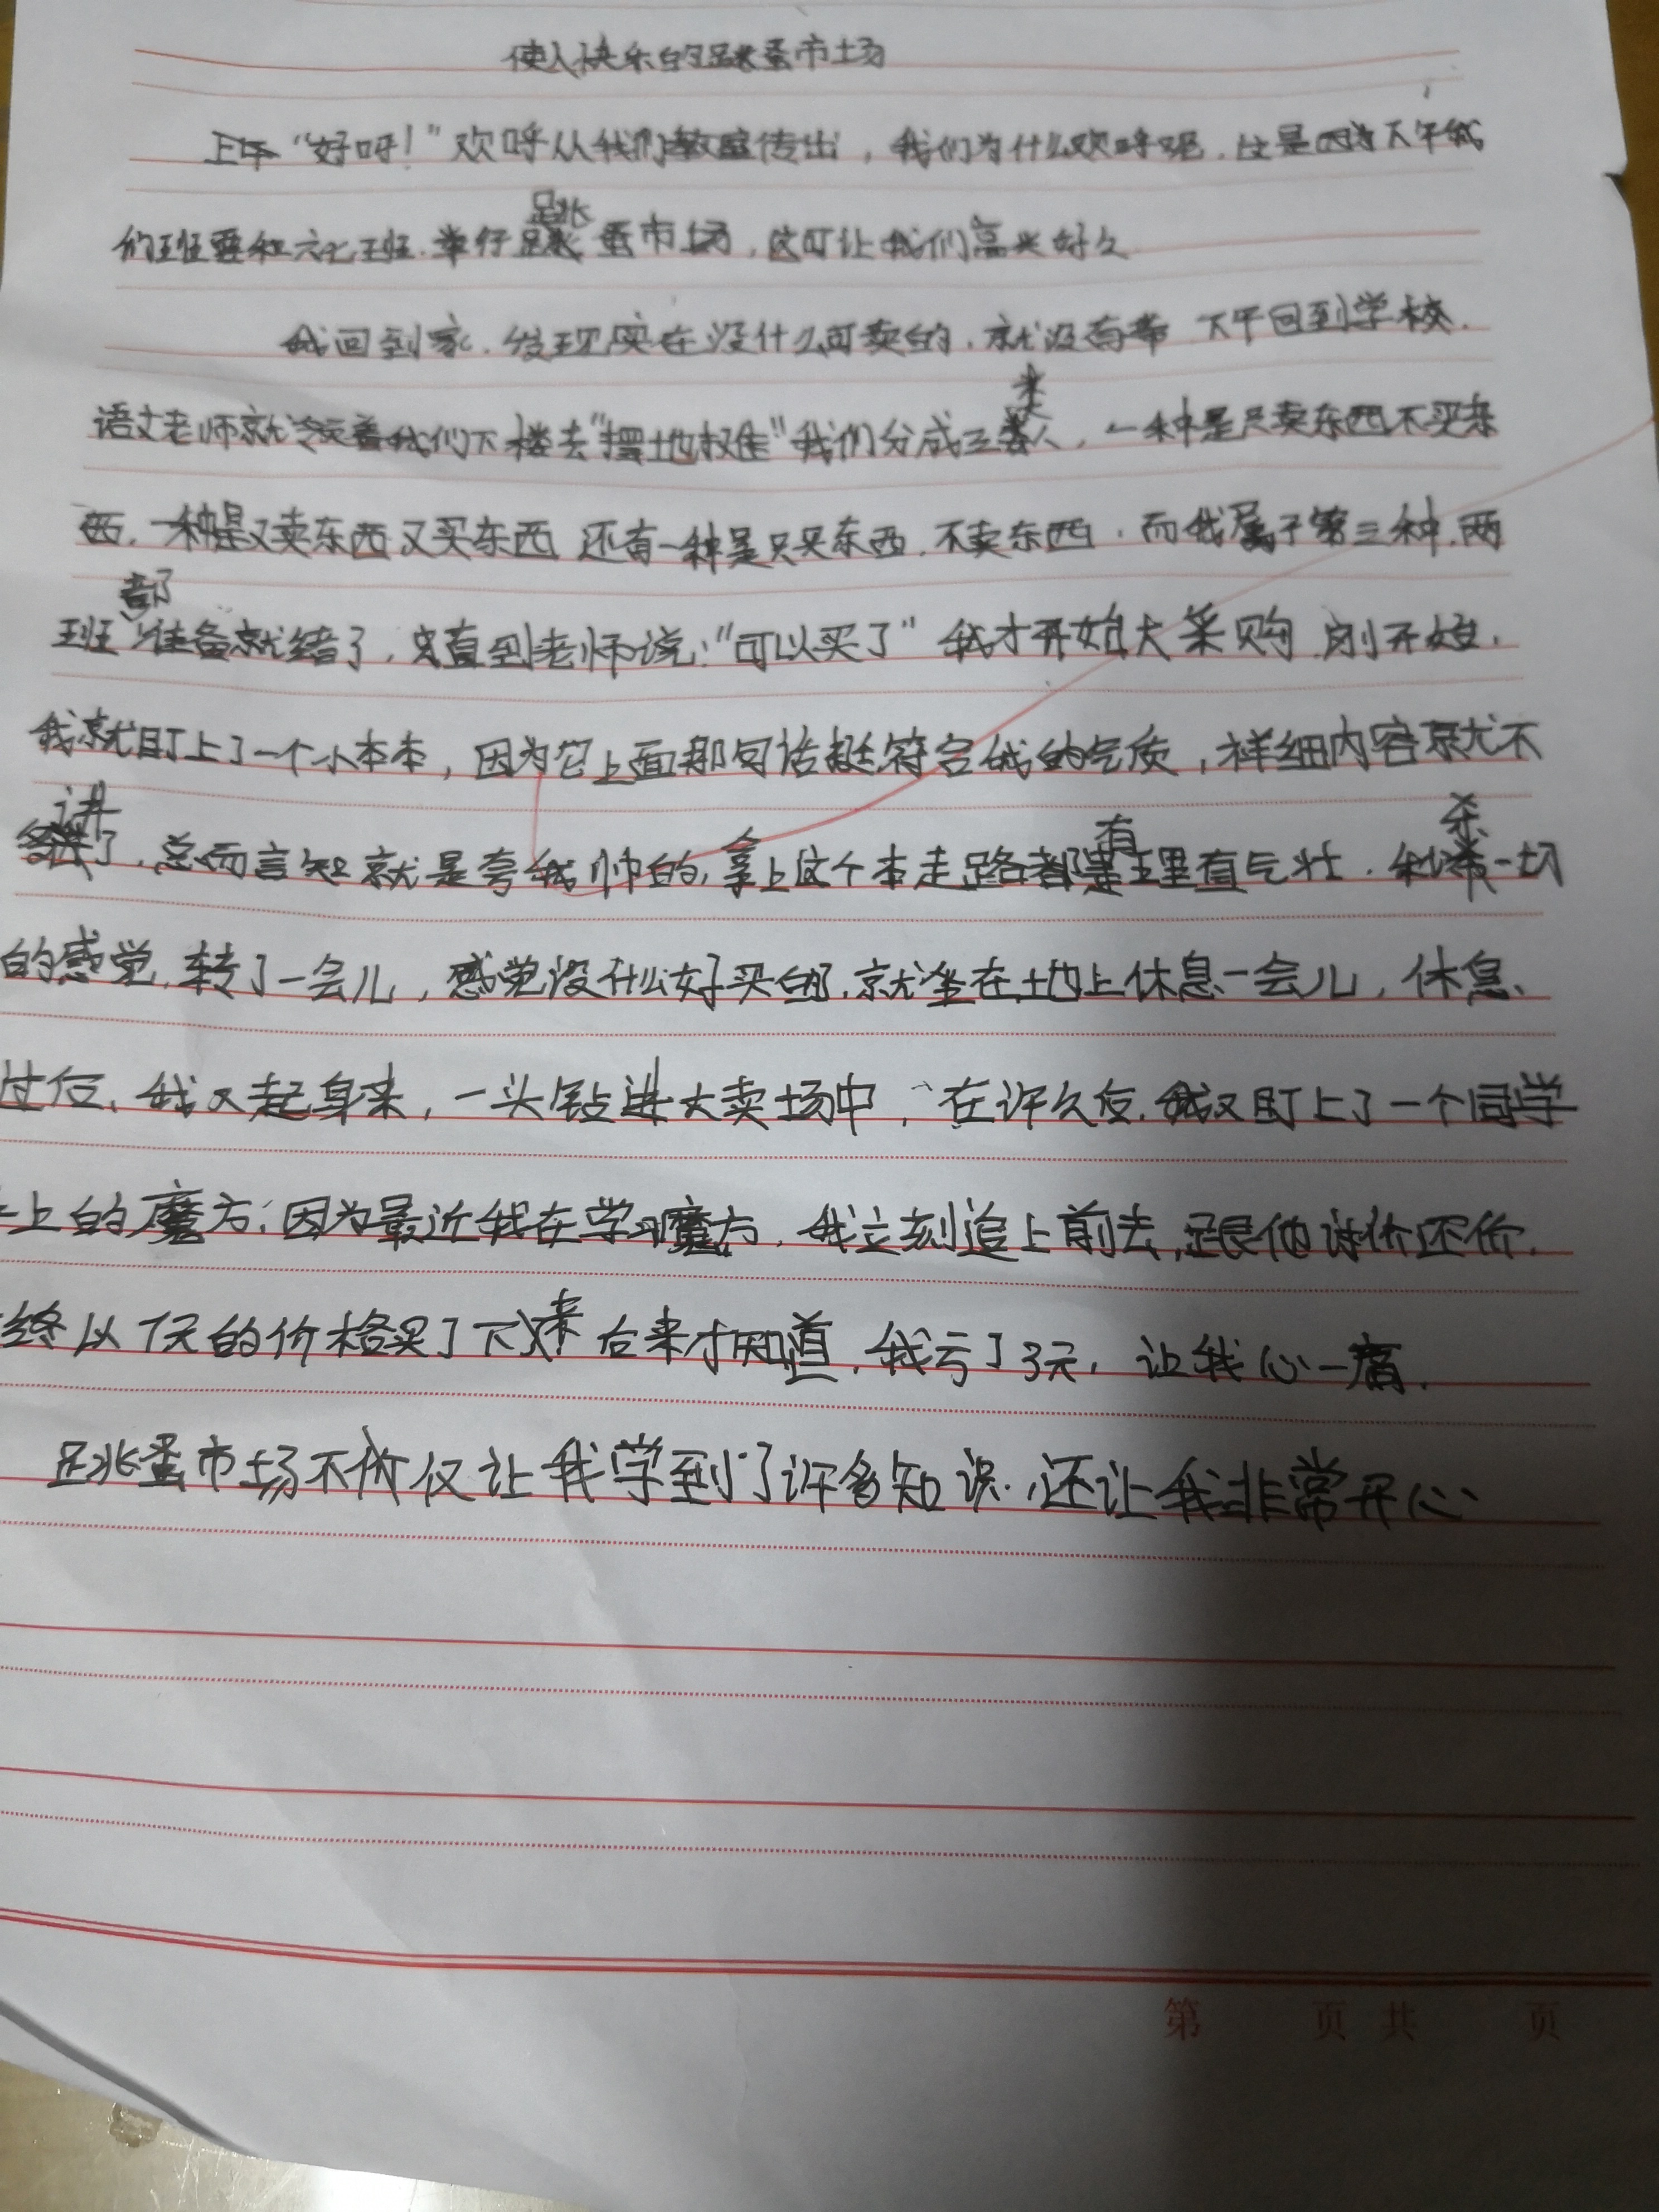 使人快乐的跳蚤市场
上午“好呀!”欢呼从我们教室传出，我们为什么欢呼呢，这是因为下午我
们班要和六七班.举行跳蚤市场，这可让我们高兴好久
我回到家.发现实在没什么可卖的.就没有带 下午回到学校.
语文老师就领着我们下楼去“摆地摊”我们分成三类人，一种是只卖东西不买东
西.一种是又卖东西又买东西 还有一种是只买东西.不卖东西.而我属于第三种.两
班都准备就绪了，直到老师说:“可以买了”我才开始大采购 刚开始.
我就盯上了一个小本本，因为它上面那句话挺符合我的气质，祥细内容就不
多讲了.总而言知就是夸我帅的,拿上这个本走路都有理有气壮.秒杀一切
的感觉.转了一会儿，感觉没什么好买的.就坐在土地上休息一会儿，休息
过后.我又起身来，一头钻进大卖场中，在许久后.我又盯上了一个同学
上的魔方;因为最近我在学习魔方.我立刻追上前去,跟他讲价还价.
终以7元的价格买了下来 后来才知道.我亏了3元，让我心一痛.
跳蚤市场不价仅让我学到了许多知识.还让我非常开心
第 页 共 页